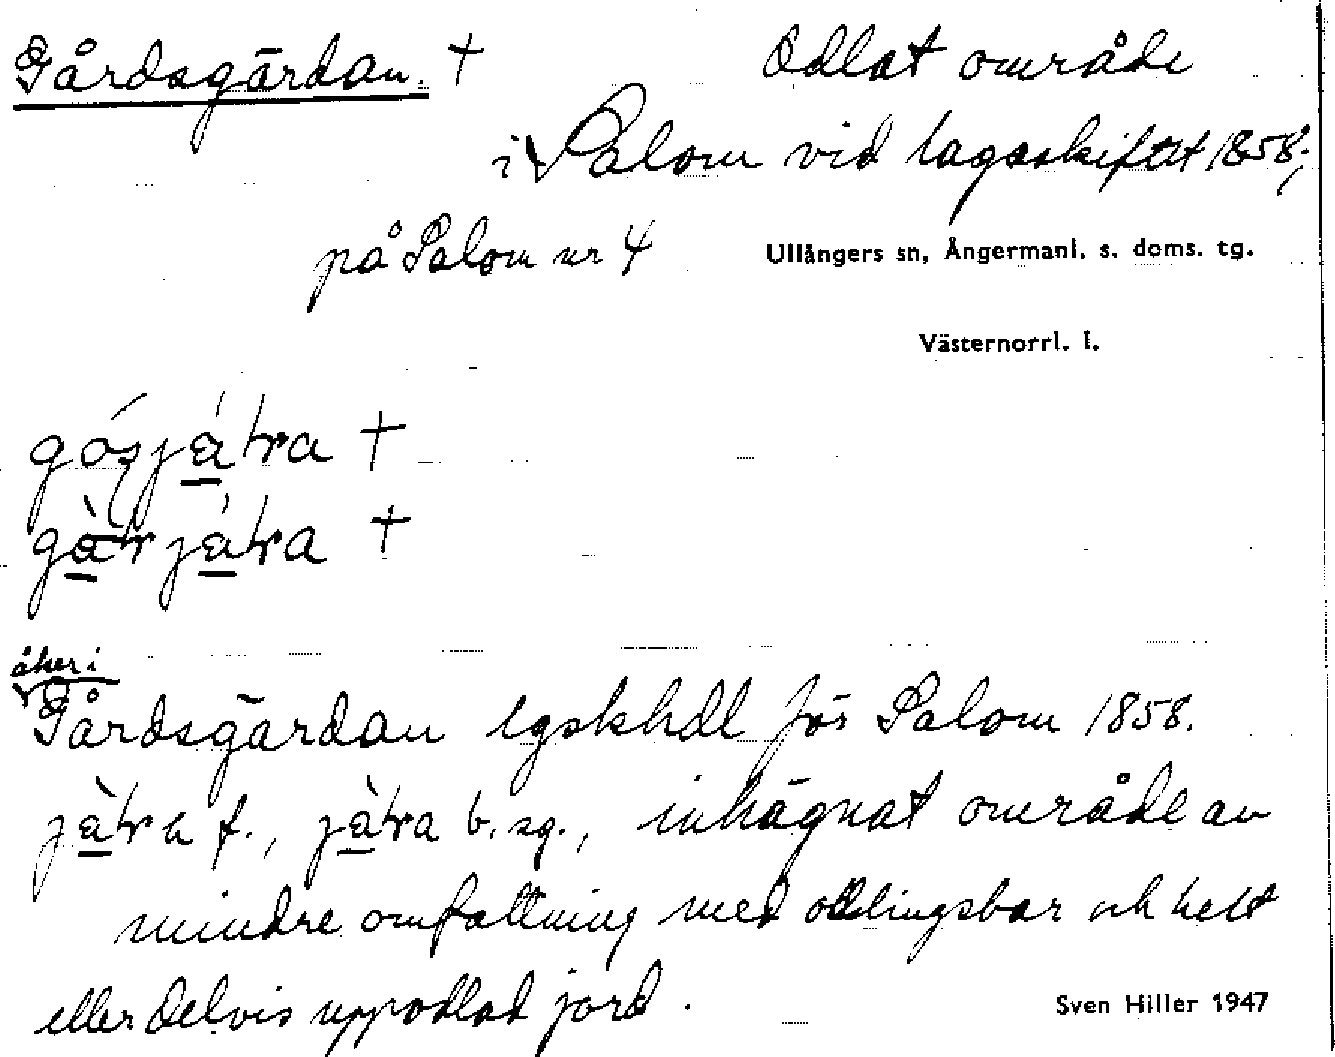 Gårdsgärdan. † Odlat område
i Salom vid lagaskiftet 1858;
på Salom nr 4 Ullångers sn, Ångermanl. s. doms. tg.
Västernorrl. l.
åker i
Gårdsgärdan lgskhdl för Salom 1858.
f., b. sg., inhägnat område av
mindre omfattning med odlingsbar och helt
eller delvis uppodlad jord.
Sven Hiller 1947